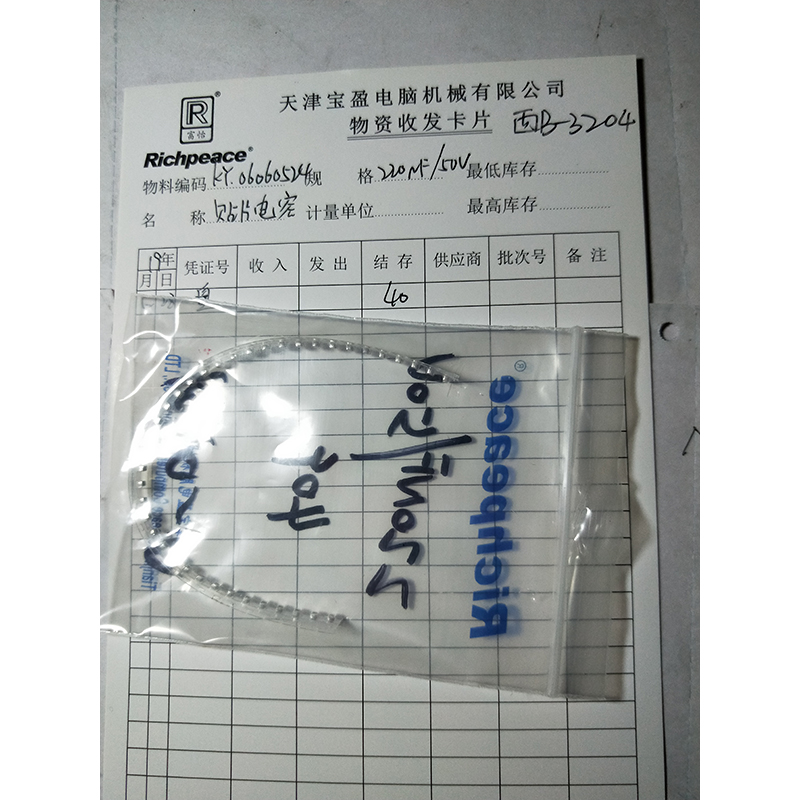 R®
富怡
Richpeace®
天津宝盈电脑机械有限公司
物资收发卡片 西B-3204
物料编码 KY.06060524 规 格 220nF/50V 最低库存
名 称 贴片电容 计量单位 最高库存
19年 凭证号 收入 发出 结存 供应商 批次号 备注
月 日
40
220nF/50V
40个
Richpeace®